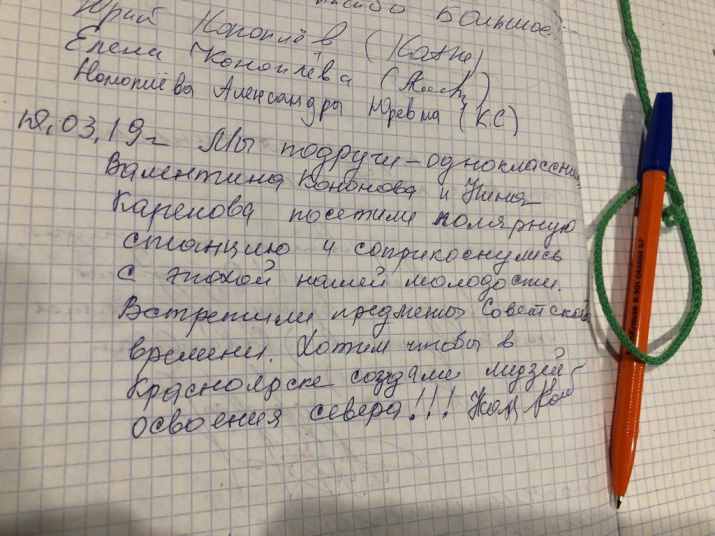 большое!
Юрий Конопл ё в (
Елена Коноплёва (
Коноплёва Александра Юревна (КС)
.03.19г Мы подруги-одноклассницы
Валентина Кононова и Нина
Карепова посетили полярную
станцию и соприкоснулись
с эпохой нашей молодости.
Встретили предметы Советского
времени. Хотим чтобы в
Красноярске создали музей
освоения севера!!!